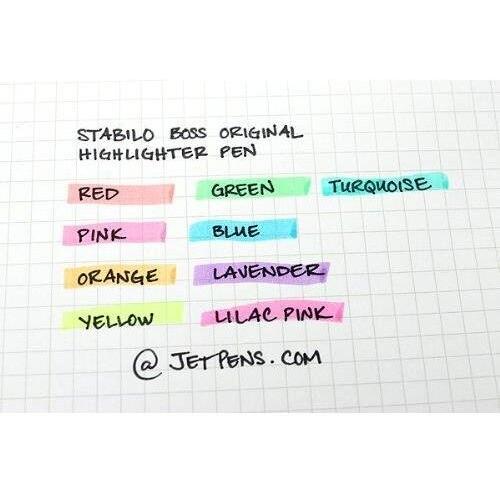 STABILO BOSS ORIGINAL
HIGHLIGHTER PEN
RED GREEN TURQUOISE
PINK BLUE
ORANGE LAVENDER
YELLOW LILAC PINK
@ JETPENS.COM